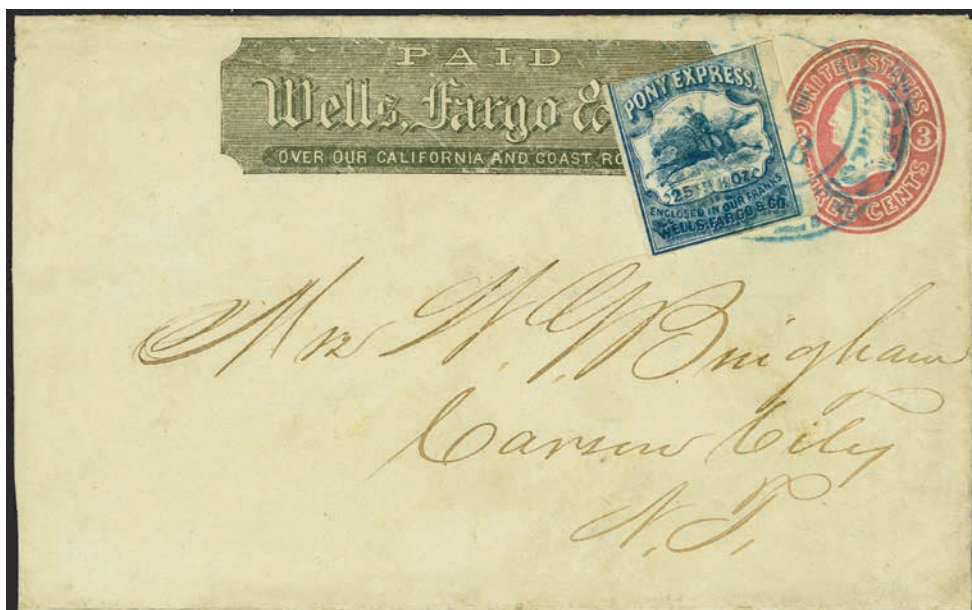 PAID
Wells, Fargo &
OVER OUR CALIFORNIA AND COAST RO
PONY EXPRESS.
25 ¢ ½ OZ
ENCLOSED IN OUR FRANKS
WELLS, FARGO & CO.
UNITED STATES
3 3
THREE CENTS
Mrs W. W. Brigham
Carson City
N. T.